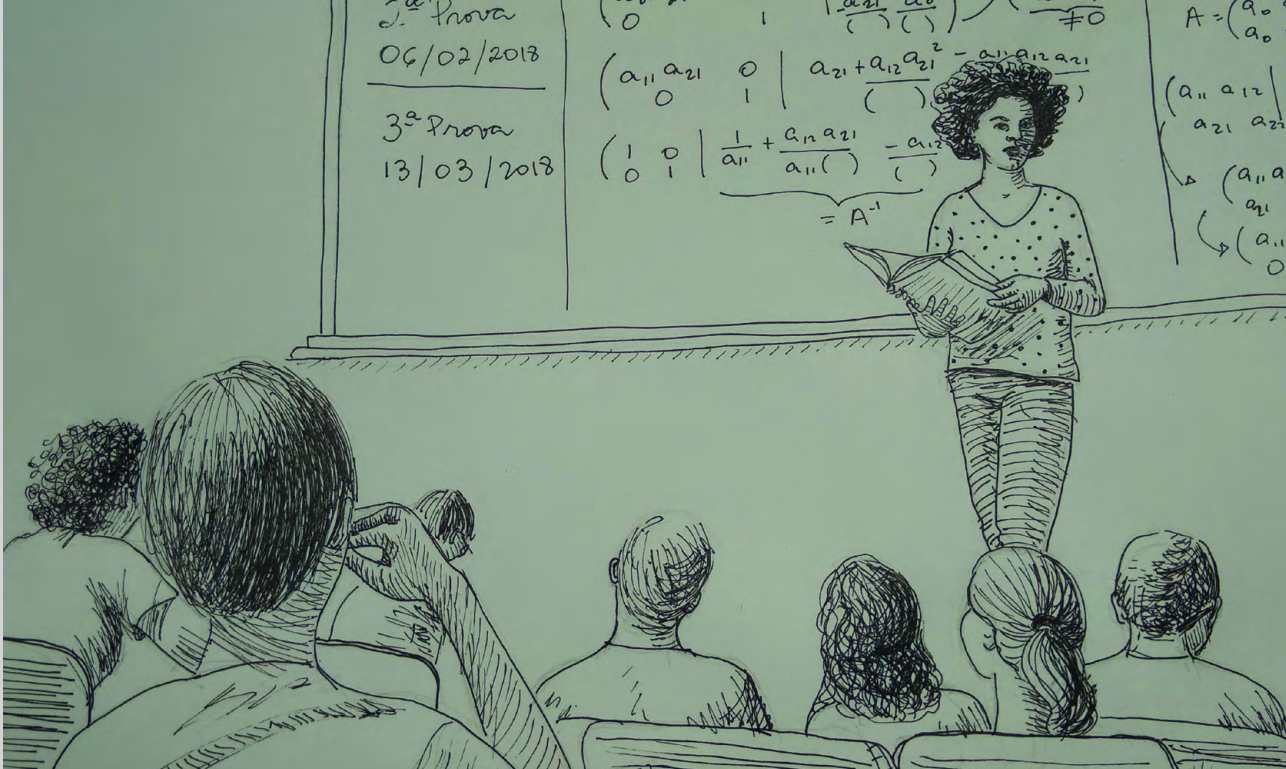 2ª Prova
06/02/2018
3ª Prova
13/03/2018
0 1 ( ) ( ) ≠0
( a₁₁ a₂₁ 0 | a₂₁ + a₁₂ a₂₁² - a₁₁ a₁₂ a₂₁
0 1 | ( ) )
( 1 0 | 1/a₁₁ + a₁₂ a₂₁/a₁₁( ) - a₁₂/( )
0 1 |
= A⁻¹
A = ( a₀
a₀
( a₁₁ a₁₂ |
a₂₁ a₂₂
( a₁₁ a
a₂₁
( a₁₁
0